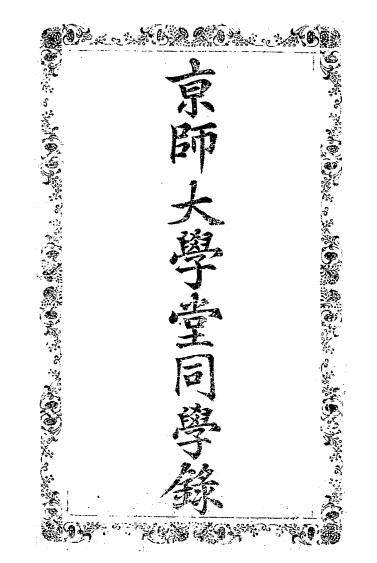 京師大學堂同學錄